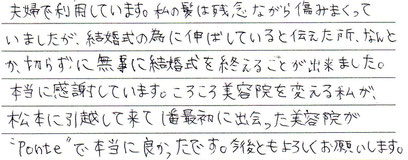 夫婦で利用しています。私の髪は残念ながら傷みまくって
いましたが、結婚式の為に伸ばしていると伝えた所、なんと
か、切らずに無事に結婚式を終えることが出来ました。
本当に感謝しています。ころころ美容院を変える私が、
松本に引越して来て1番最初に出会った美容院が
"Ponte"で本当に良かったです。今後ともよろしくお願いします。